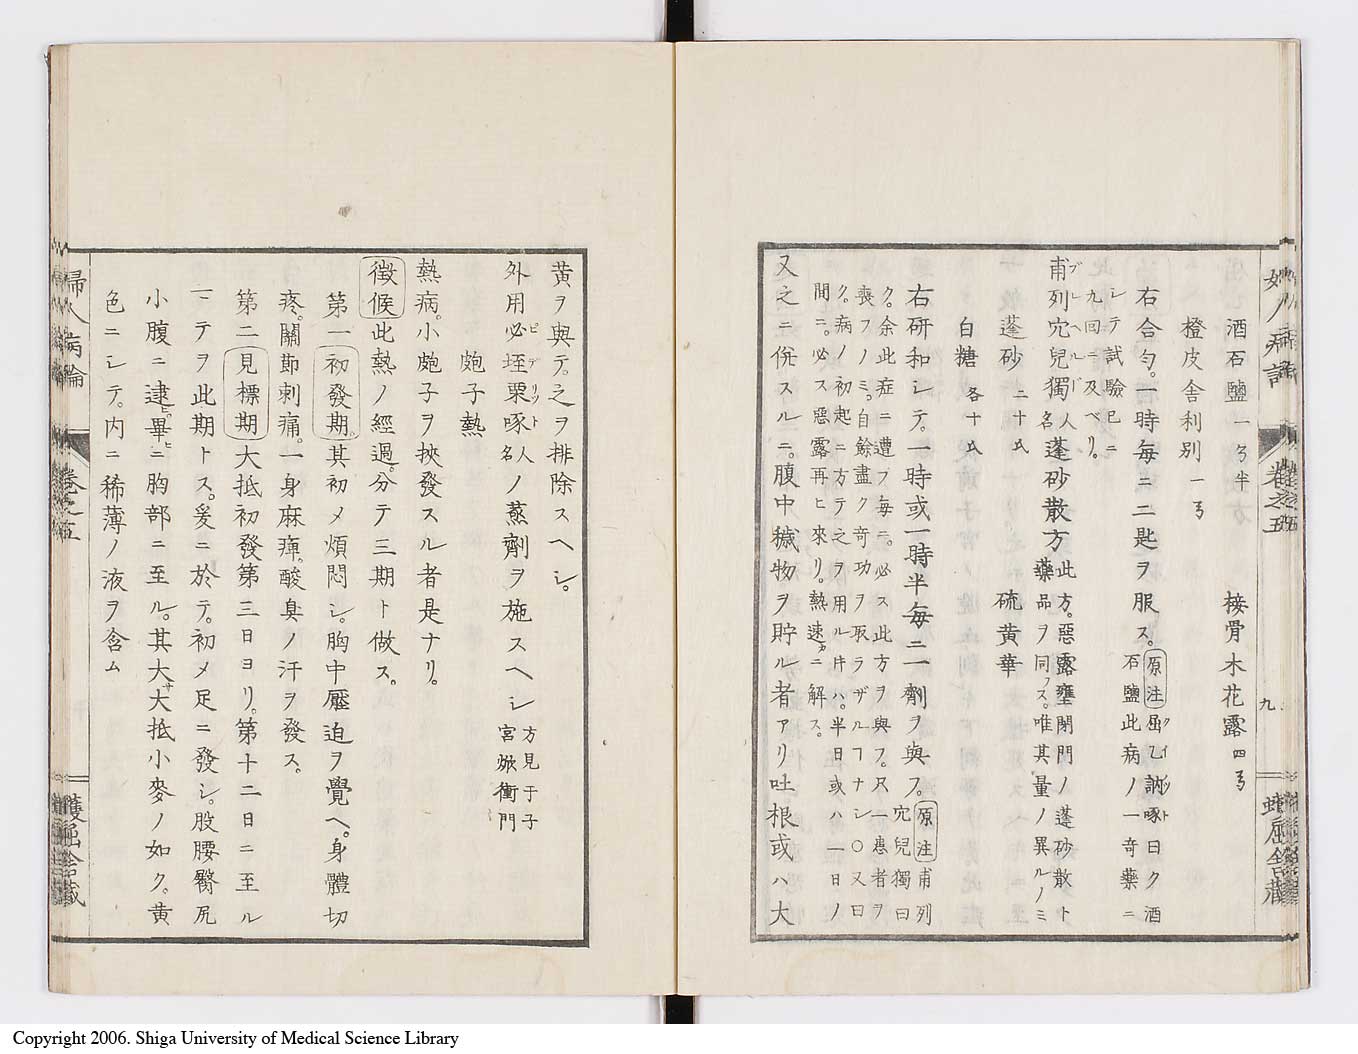 酒石鹽 一ゟ半 接骨木花露 四ゟ
橙皮舎利別 一ゟ
右合匀。一時毎ニ二匙ヲ服ス。原注屈乙訥啄曰ク酒
石鹽此病ノ一奇藥ニ
シテ試驗已ニ
九回ニ及ベリ。
甫列穴兒獨人名蓬砂散方此方。惡露壅閉門ノ蓬砂散ト
藥品ヲ同フス。唯其量ノ異ルノミ
蓬砂 二十 硫黄華
白糖 各十
右研和シテ。一時或一時半毎ニ一劑ヲ與フ。原注甫列
穴兒獨曰
ク。余此症ニ遭フ毎ニ。必ス此方ヲ與フ。只一患者ヲ
喪フノミ。自餘盡ク奇功ヲ取ラザルヿナシ〇又曰
ク。病ノ初起ニ方テ之ヲ用ル片ハ。半日或ハ一日ノ
間ニ。必ス惡露再ヒ來リ。熱速カニ解ス。
又之ニ侂スルニ。腹中穢物ヲ貯ル者アリ吐根或ハ大
婦人病論 卷之五 九 蠖屈舎藏
黄ヲ與テ。之ヲ排除スヘシ。
外用必垤栗啄人名ノ蒸劑ヲ施スヘシ方見于子宮焮衝門
皰子熱
熱病。小皰子ヲ挾發スル者是ナリ。
徴候此熱ノ經過。分テ三期ト做ス。
第一初發期。其初メ煩悶シ。胸中壓迫ヲ覺ヘ。身體切
疼。關節刺痛。一身麻痺。酸臭ノ汗ヲ發ス。
第二見標期大抵初發第三日ヨリ。第十二日ニ至ル
マテヲ此期トス。爰ニ於テ。初メ足ニ發シ。股腰臀尻
小腹ニ逮ヒ。畢ヒニ胸部ニ至ル。其大サ大抵小麥ノ如ク。黄
色ニシテ。内ニ稀薄ノ液ヲ含ム
婦人病論 卷之五 蠖屈舎藏
Copyright 2006. Shiga University of Medical Science Library